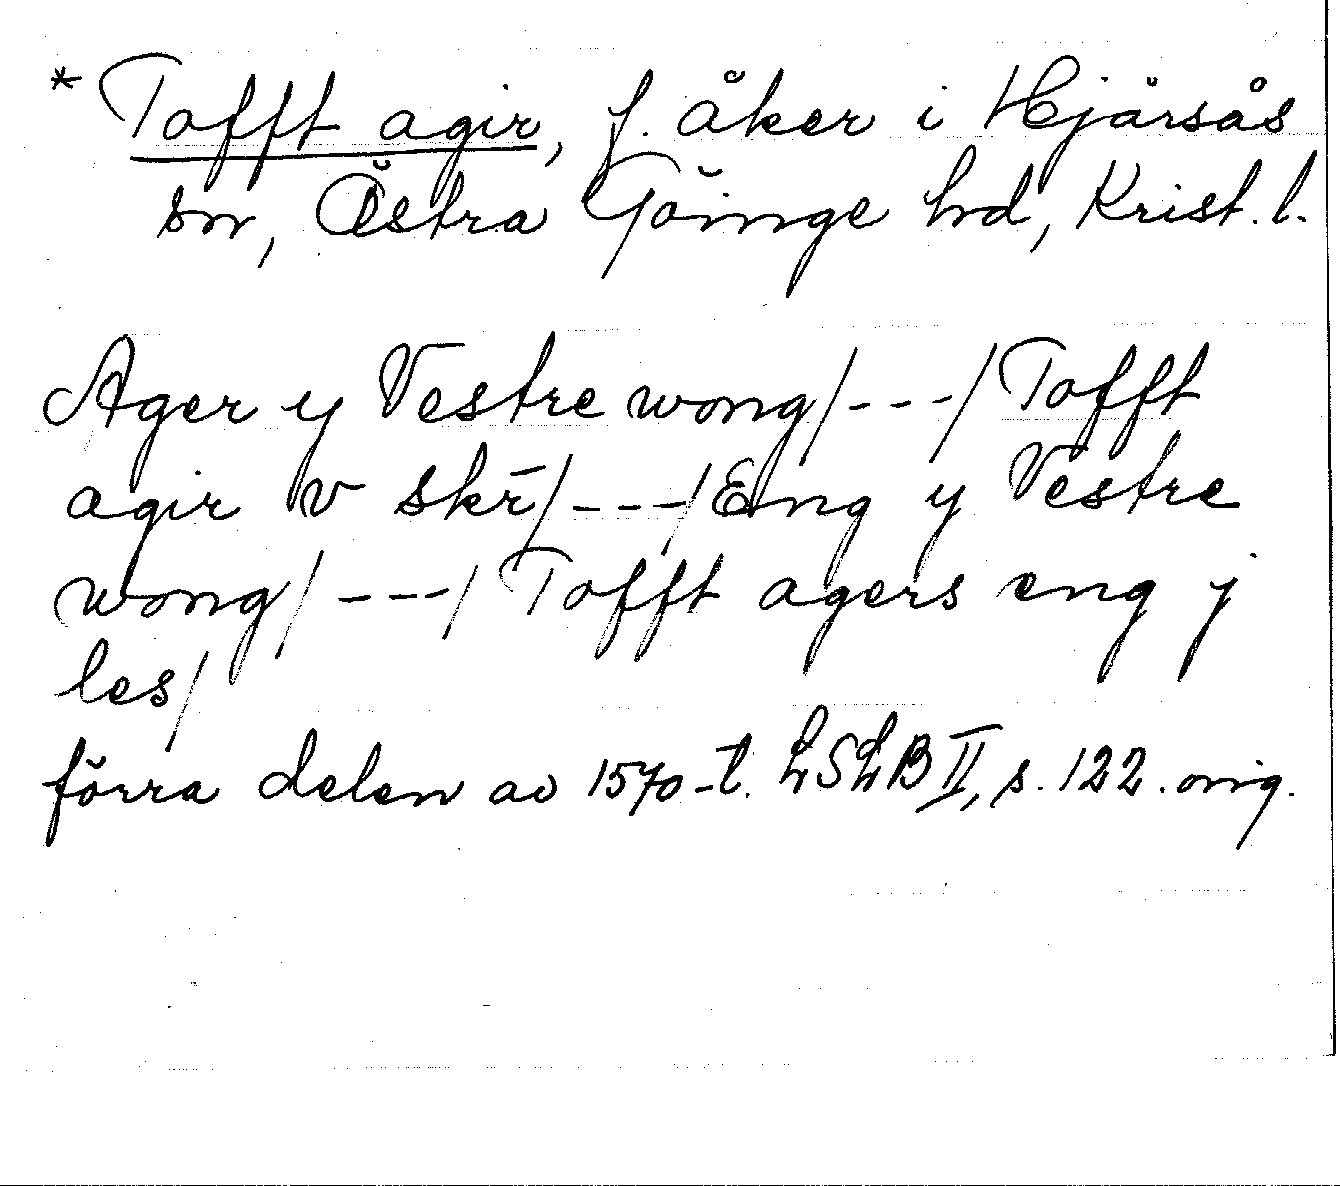 * Tofft agir, f. åker i Hjärsås
sn, Östra Göinge hd, Krist. l.
Ager y Vestre wong/---/Tofft
agir v skr̄/---/Eng y Vestre
wong/---/Tofft agers eng j
les/
förra delen av 1570-t. LSLB II, s. 122. orig.